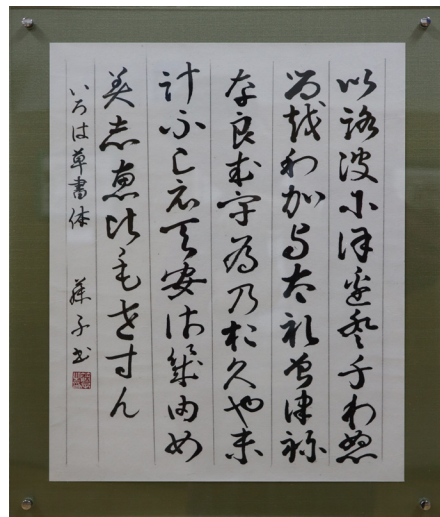 以路波尓保遍登千利怒
留越和加与太礼曽津祢
奈良武宇為乃於久也末
計不己衣天安佐幾由女
美志恵比毛世寸ん
いろは草書体 子書